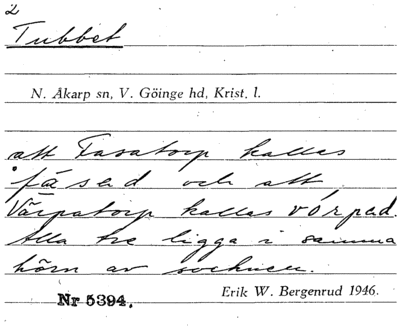 2
Tubbet
N. Åkarp sn, V. Göinge hd, Krist. l.
att Fasatorp kallas
fásad och att
Värpatorp kallas vórpad.
Alla tre ligga i samma
hörn av socknen.
Erik W. Bergenrud 1946.
Nr 5394.